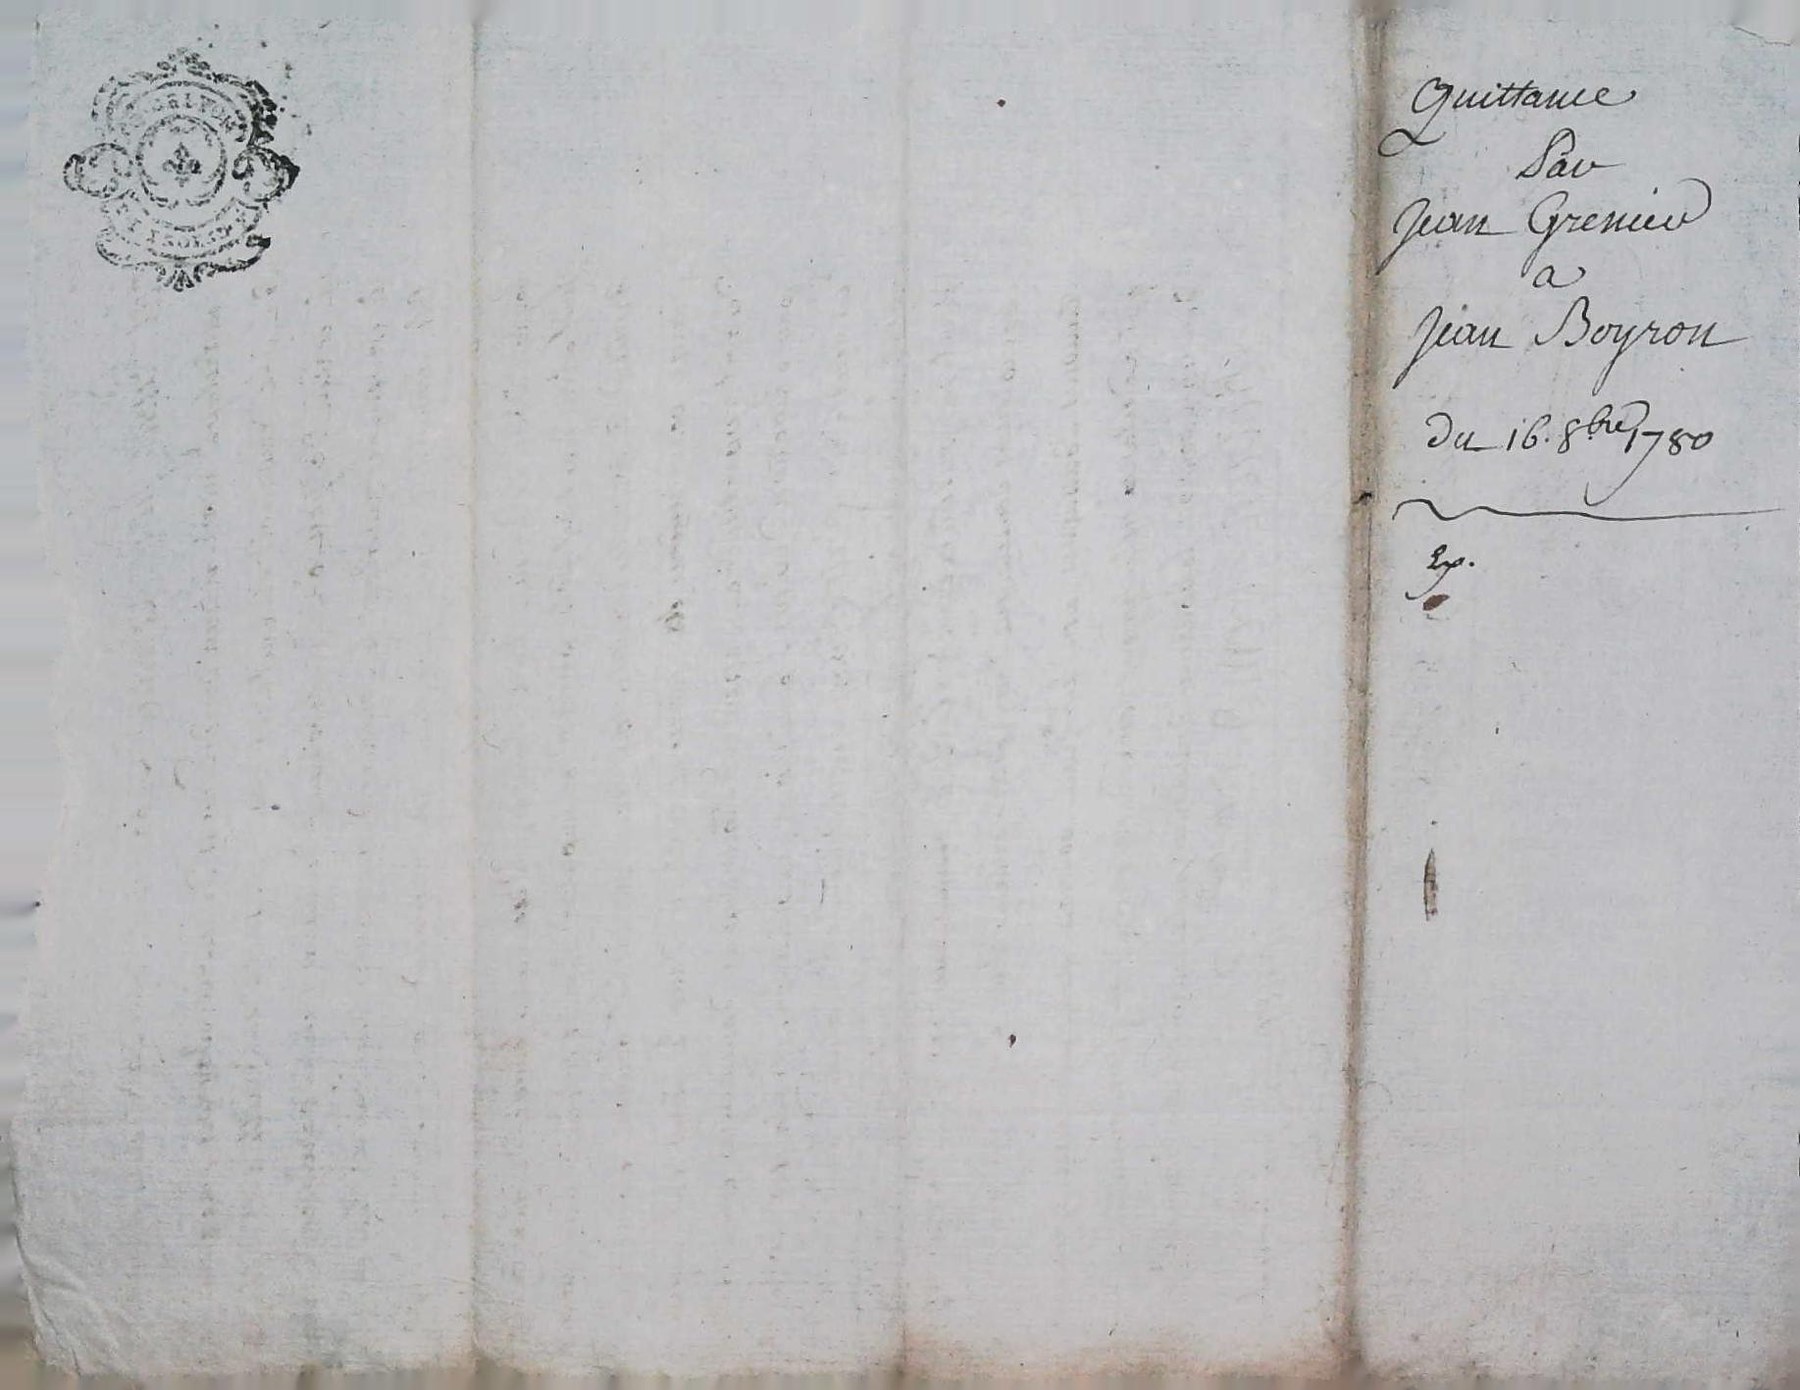 Quittance
Par
Jean Grenier
a
Jean Boyron
du 16. 8bre 1780
Exp.